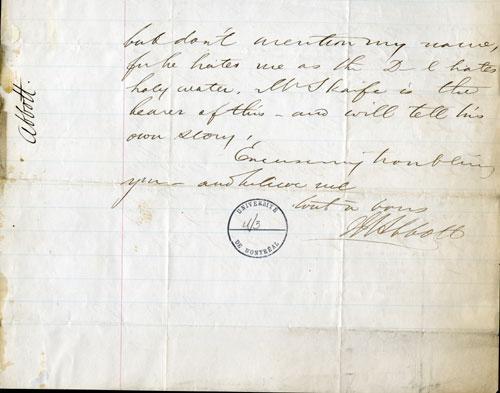 but don't mention my name,
for he hates me as the D—l hates
holy water. Mr Skaife is the
bearer of this - and will tell his
own story.
Excuse my troubling
you - and believe me
tout a vous
Abbott
Abbott.
UNIVERSITÉ
4/3
DE MONTRÉAL